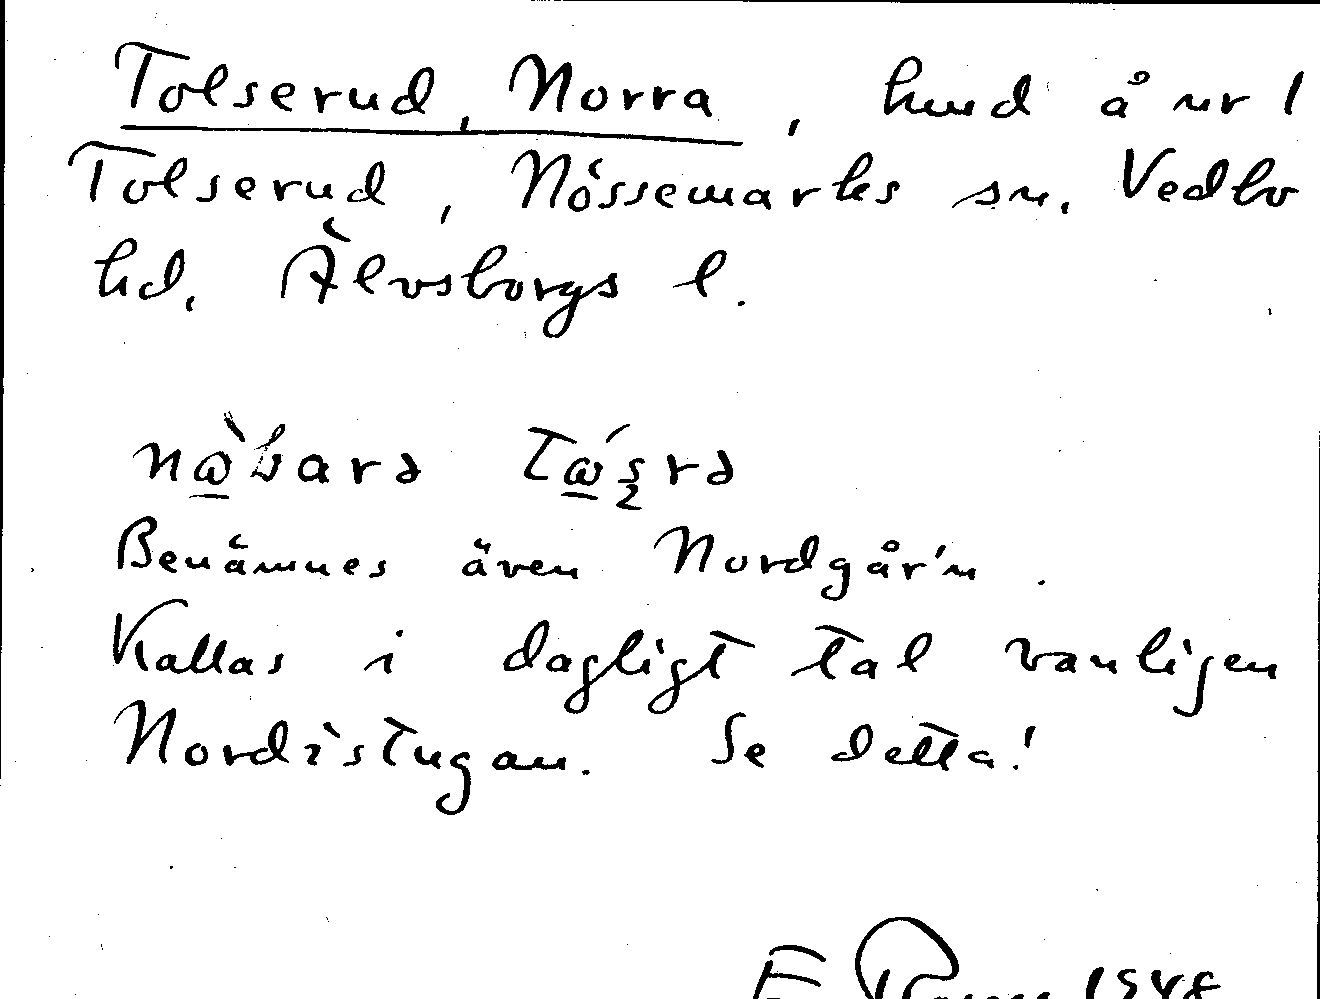 Tolserud, Norra, hmd å nr 1
Tolserud, Nössemarks sn. Vedbo
hd. Älvsborgs l.
Benämnes även Nordgår'n.
Kallas i dagligt tal vanligen
Nordistugan. Se detta!
E. 1948